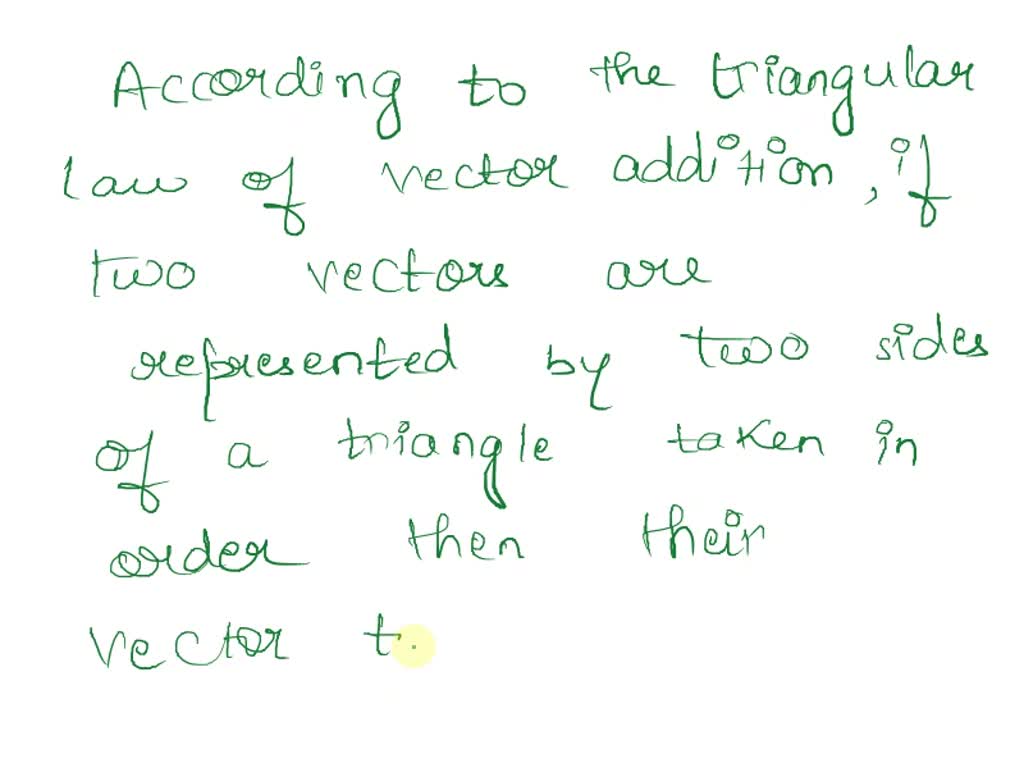 According to the triangular
law of vector addition, if
two vectors are
represented by two sides
of a triangle taken in
order then their
vector t